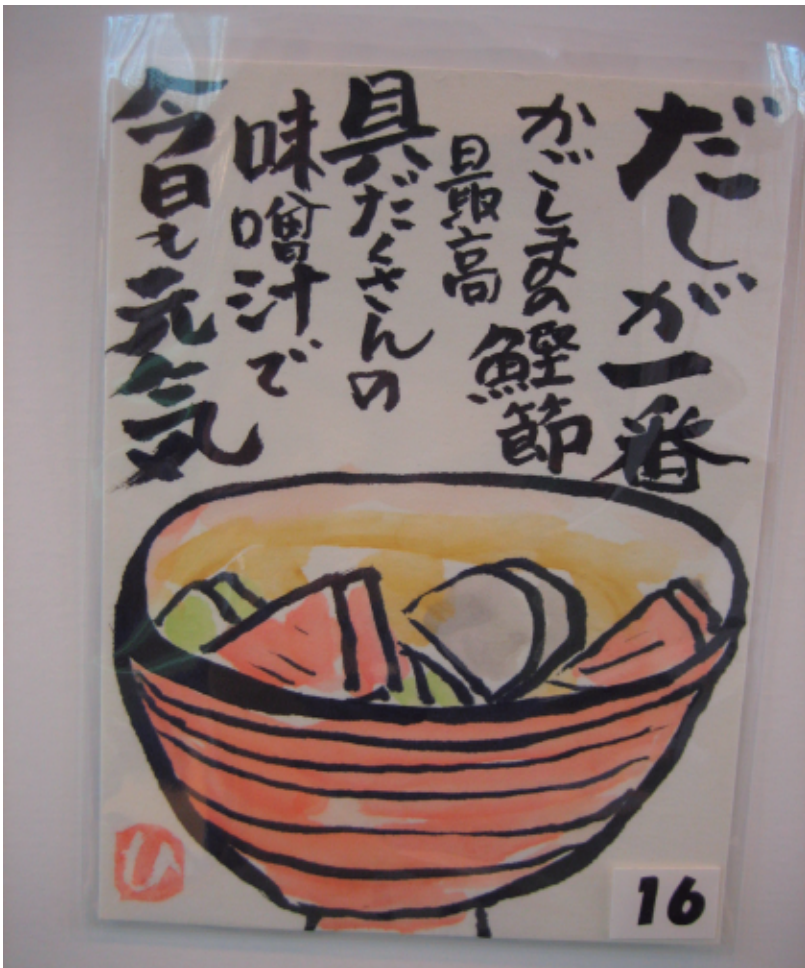 だしが一番
かごしまの鰹節
最高
具だくさんの
味噌汁で
今日も元気
ひ
16